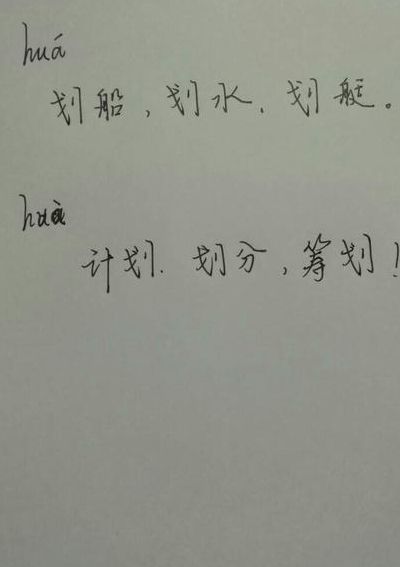 huá
划船，划水、划艇。
huà
计划．划分，筹划！